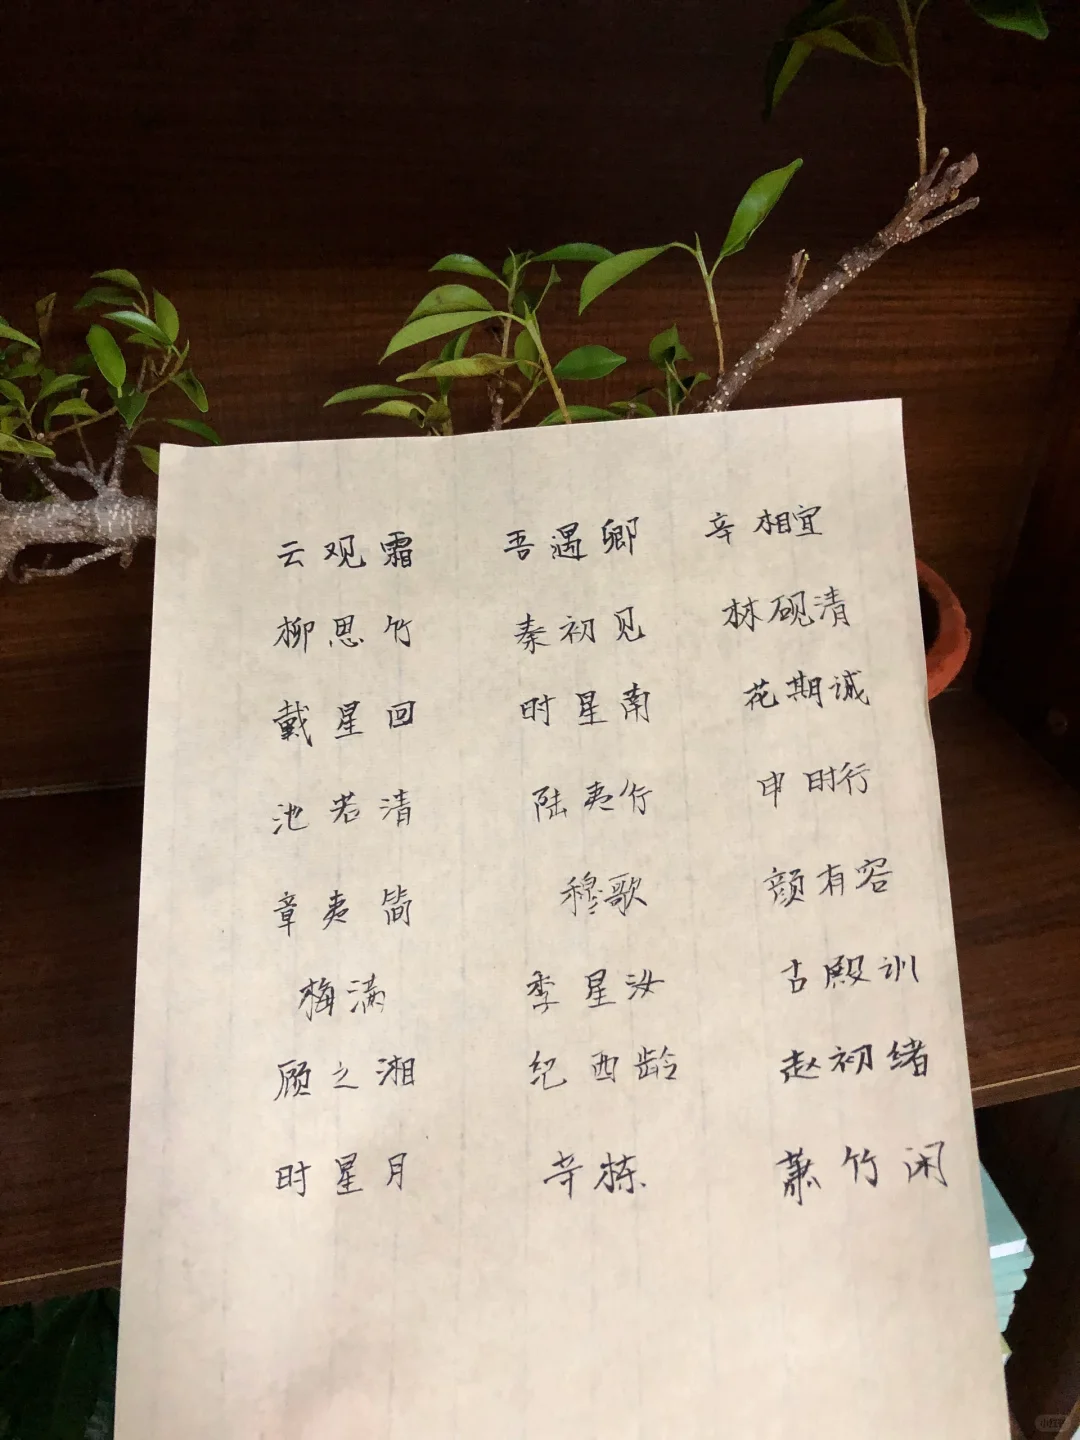 云观霜 吾遇卿 辛相宜
柳思竹 秦初见 林砚清
戴星回 时星南 花期诚
池若清 陆夷行 申时行
章夷简 穆歌 颜有容
梅满 季星汝 古殿训
顾之湘 纪西龄 赵初绪
时星月 辛栋 萧竹闲
小红书